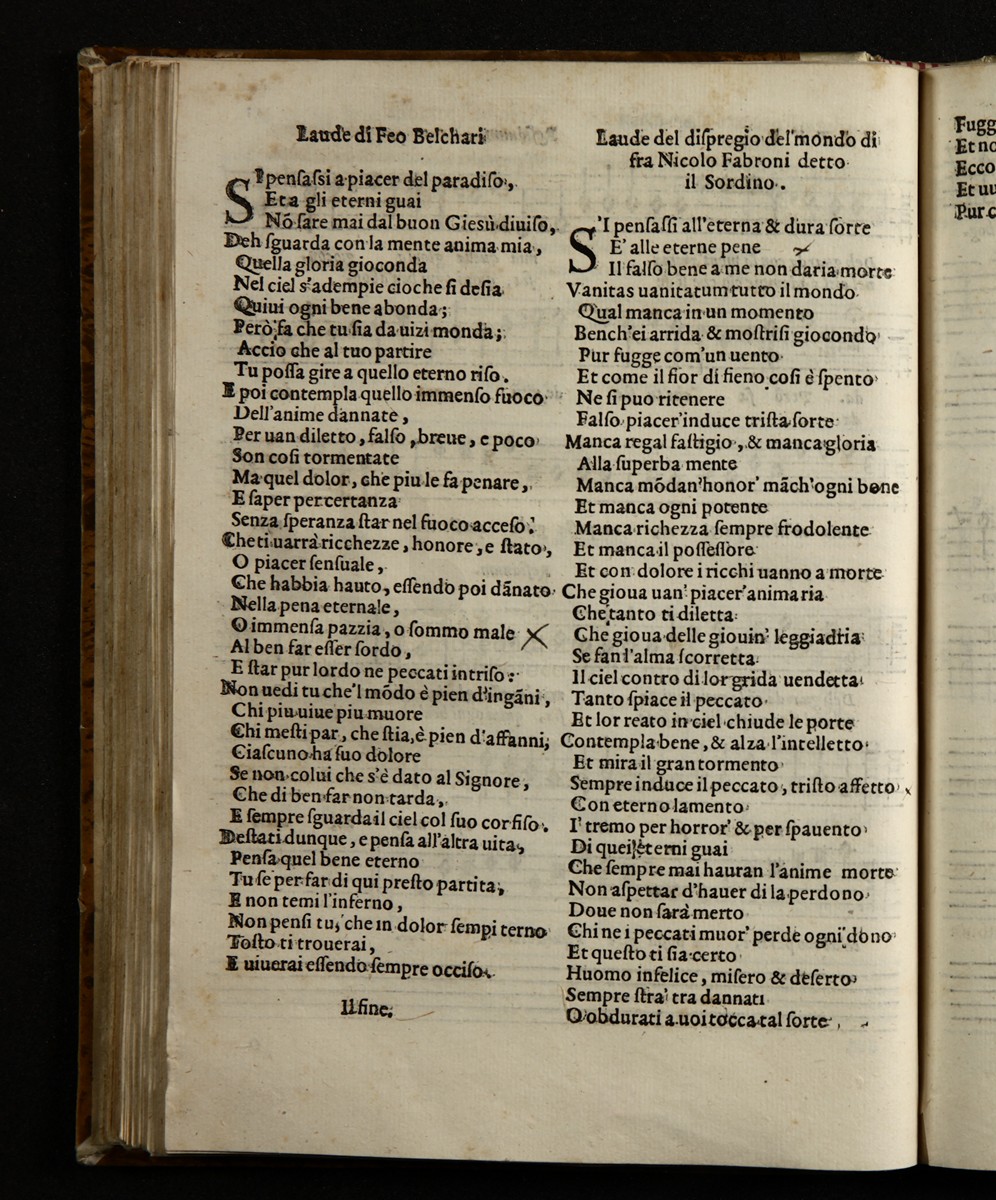 Laude di Feo Belchari
SIpenſaſsi a piacer del paradiſo,
Et a gli eterni guai
Nõ ſare mai dal buon Gieſù diuiſo,
Deh ſguarda con la mente anima mia,
Quella gloria gioconda
Nel ciel s'adempie cioche ſi deſia
Quiui ogni bene abonda;
Però fa che tu ſia da uizi monda;
Accio che al tuo partire
Tu poſſa gire a quello eterno riſo.
E poi contempla quello immenſo fuoco
Dell'anime dannate,
Per uan diletto, falſo, breue, e poco
Son coſi tormentate
Ma quel dolor, che piu le fa penare,
E ſaper per certanza
Senza ſperanza ſtar nel fuoco acceſo.
Che ti uarrà ricchezze, honore, e ſtato,
O piacer ſenſuale,
Che habbia hauto, eſſendo poi dãnato
Nella pena eternale,
O immenſa pazzia, o ſommo male
Al ben far eſſer ſordo,
E ſtar pur lordo ne peccati intriſo:
Non uedi tu che'l mõdo è pien d'ingãni,
Chi piu uiue piu muore
Chi meſti par, che ſtia, è pien d'affanni;
Ciaſcuno ha ſuo dolore
Se non colui che s'è dato al Signore,
Che di ben far non tarda,
E ſempre ſguarda il ciel col ſuo cor fiſo.
Deſtati dunque, e penſa all'altra uita,
Penſa quel bene eterno
Tu ſe per far di qui preſto partita,
E non temi l'inferno,
Non penſi tu, che in dolor ſempi terno
Toſto ti trouerai,
E uiuerai eſſendo ſempre occiſo.
Il fine.
Laude del diſpregio del mondo di
fra Nicolo Fabroni detto
il Sordino.
S'I penſaſſi all'eterna & dura ſorte
E' alle eterne pene
Il falſo bene a me non daria morte
Vanitas uanitatum tutto il mondo
Qual manca in un momento
Bench'ei arrida & moſtriſi giocondo
Pur fugge com'un uento
Et come il fior di fieno coſi è ſpento
Ne ſi puo ritenere
Falſo piacer'induce triſta ſorte
Manca regal faſtigio, & manca gloria
Alla ſuperba mente
Manca mõdan'honor' mãch'ogni bene
Et manca ogni potente
Manca richezza ſempre frodolente
Et manca il poſſeſſore
Et con dolore i ricchi uanno a morte
Che gioua uan' piacer' anima ria
Che tanto ti diletta
Che gioua delle giouin' leggiadria
Se fan l'alma ſcorretta
Il ciel contro di lor grida uendetta
Tanto ſpiace il peccato
Et lor reato in ciel chiude le porte
Contempla bene, & alza l'intelletto
Et mira il gran tormento
Sempre induce il peccato, triſto affetto
Con eterno lamento
I' tremo per horror' & per ſpauento
Di quei eterni guai
Che ſempre mai hauran l'anime morte
Non aſpettar d'hauer di la perdono
Doue non ſarà merto
Chi ne i peccati muor' perde ogni dono
Et queſto ti ſia certo
Huomo infelice, miſero & deſerto
Sempre ſtra' tra dannati
O obdurati a uoi tocca tal ſorte,
Fugg
Et no
Ecco
Et uu
Pur c